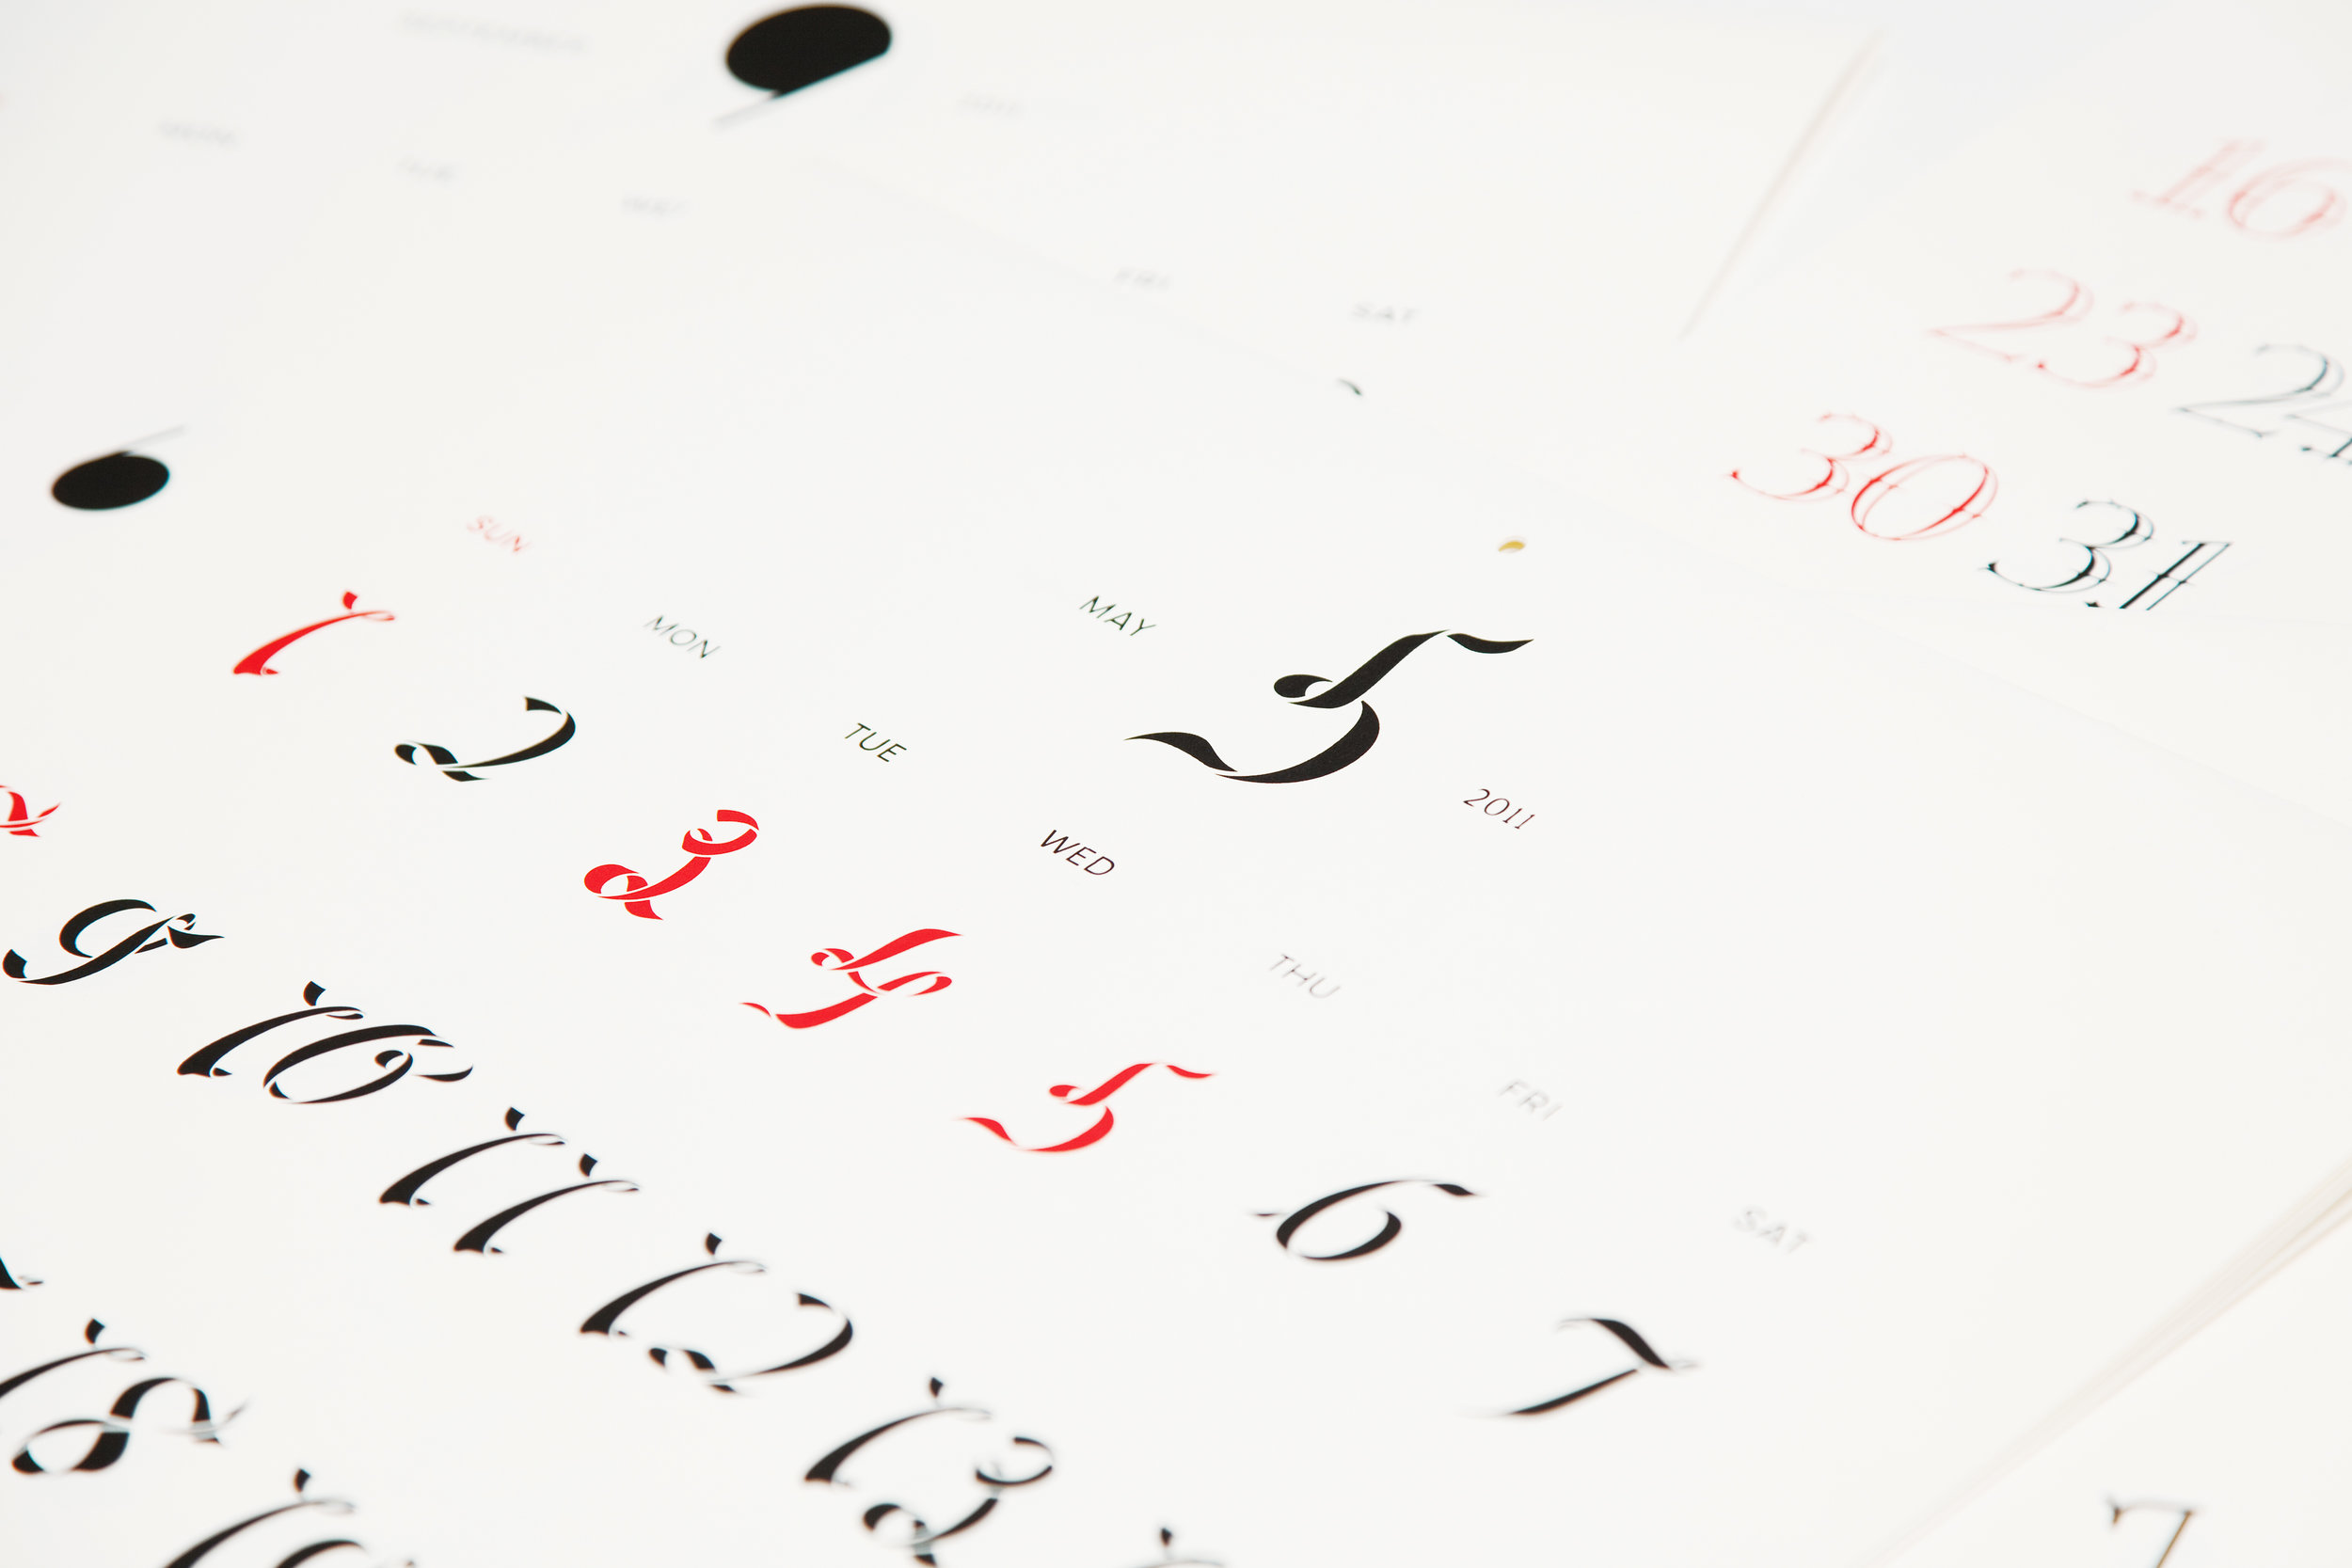 MAY
5
2011
SUN MON TUE WED THU FRI SAT
1 2 3 4 5 6 7
9 10 11 12 13
18
FRI SAT
16
23 24
30 31
7